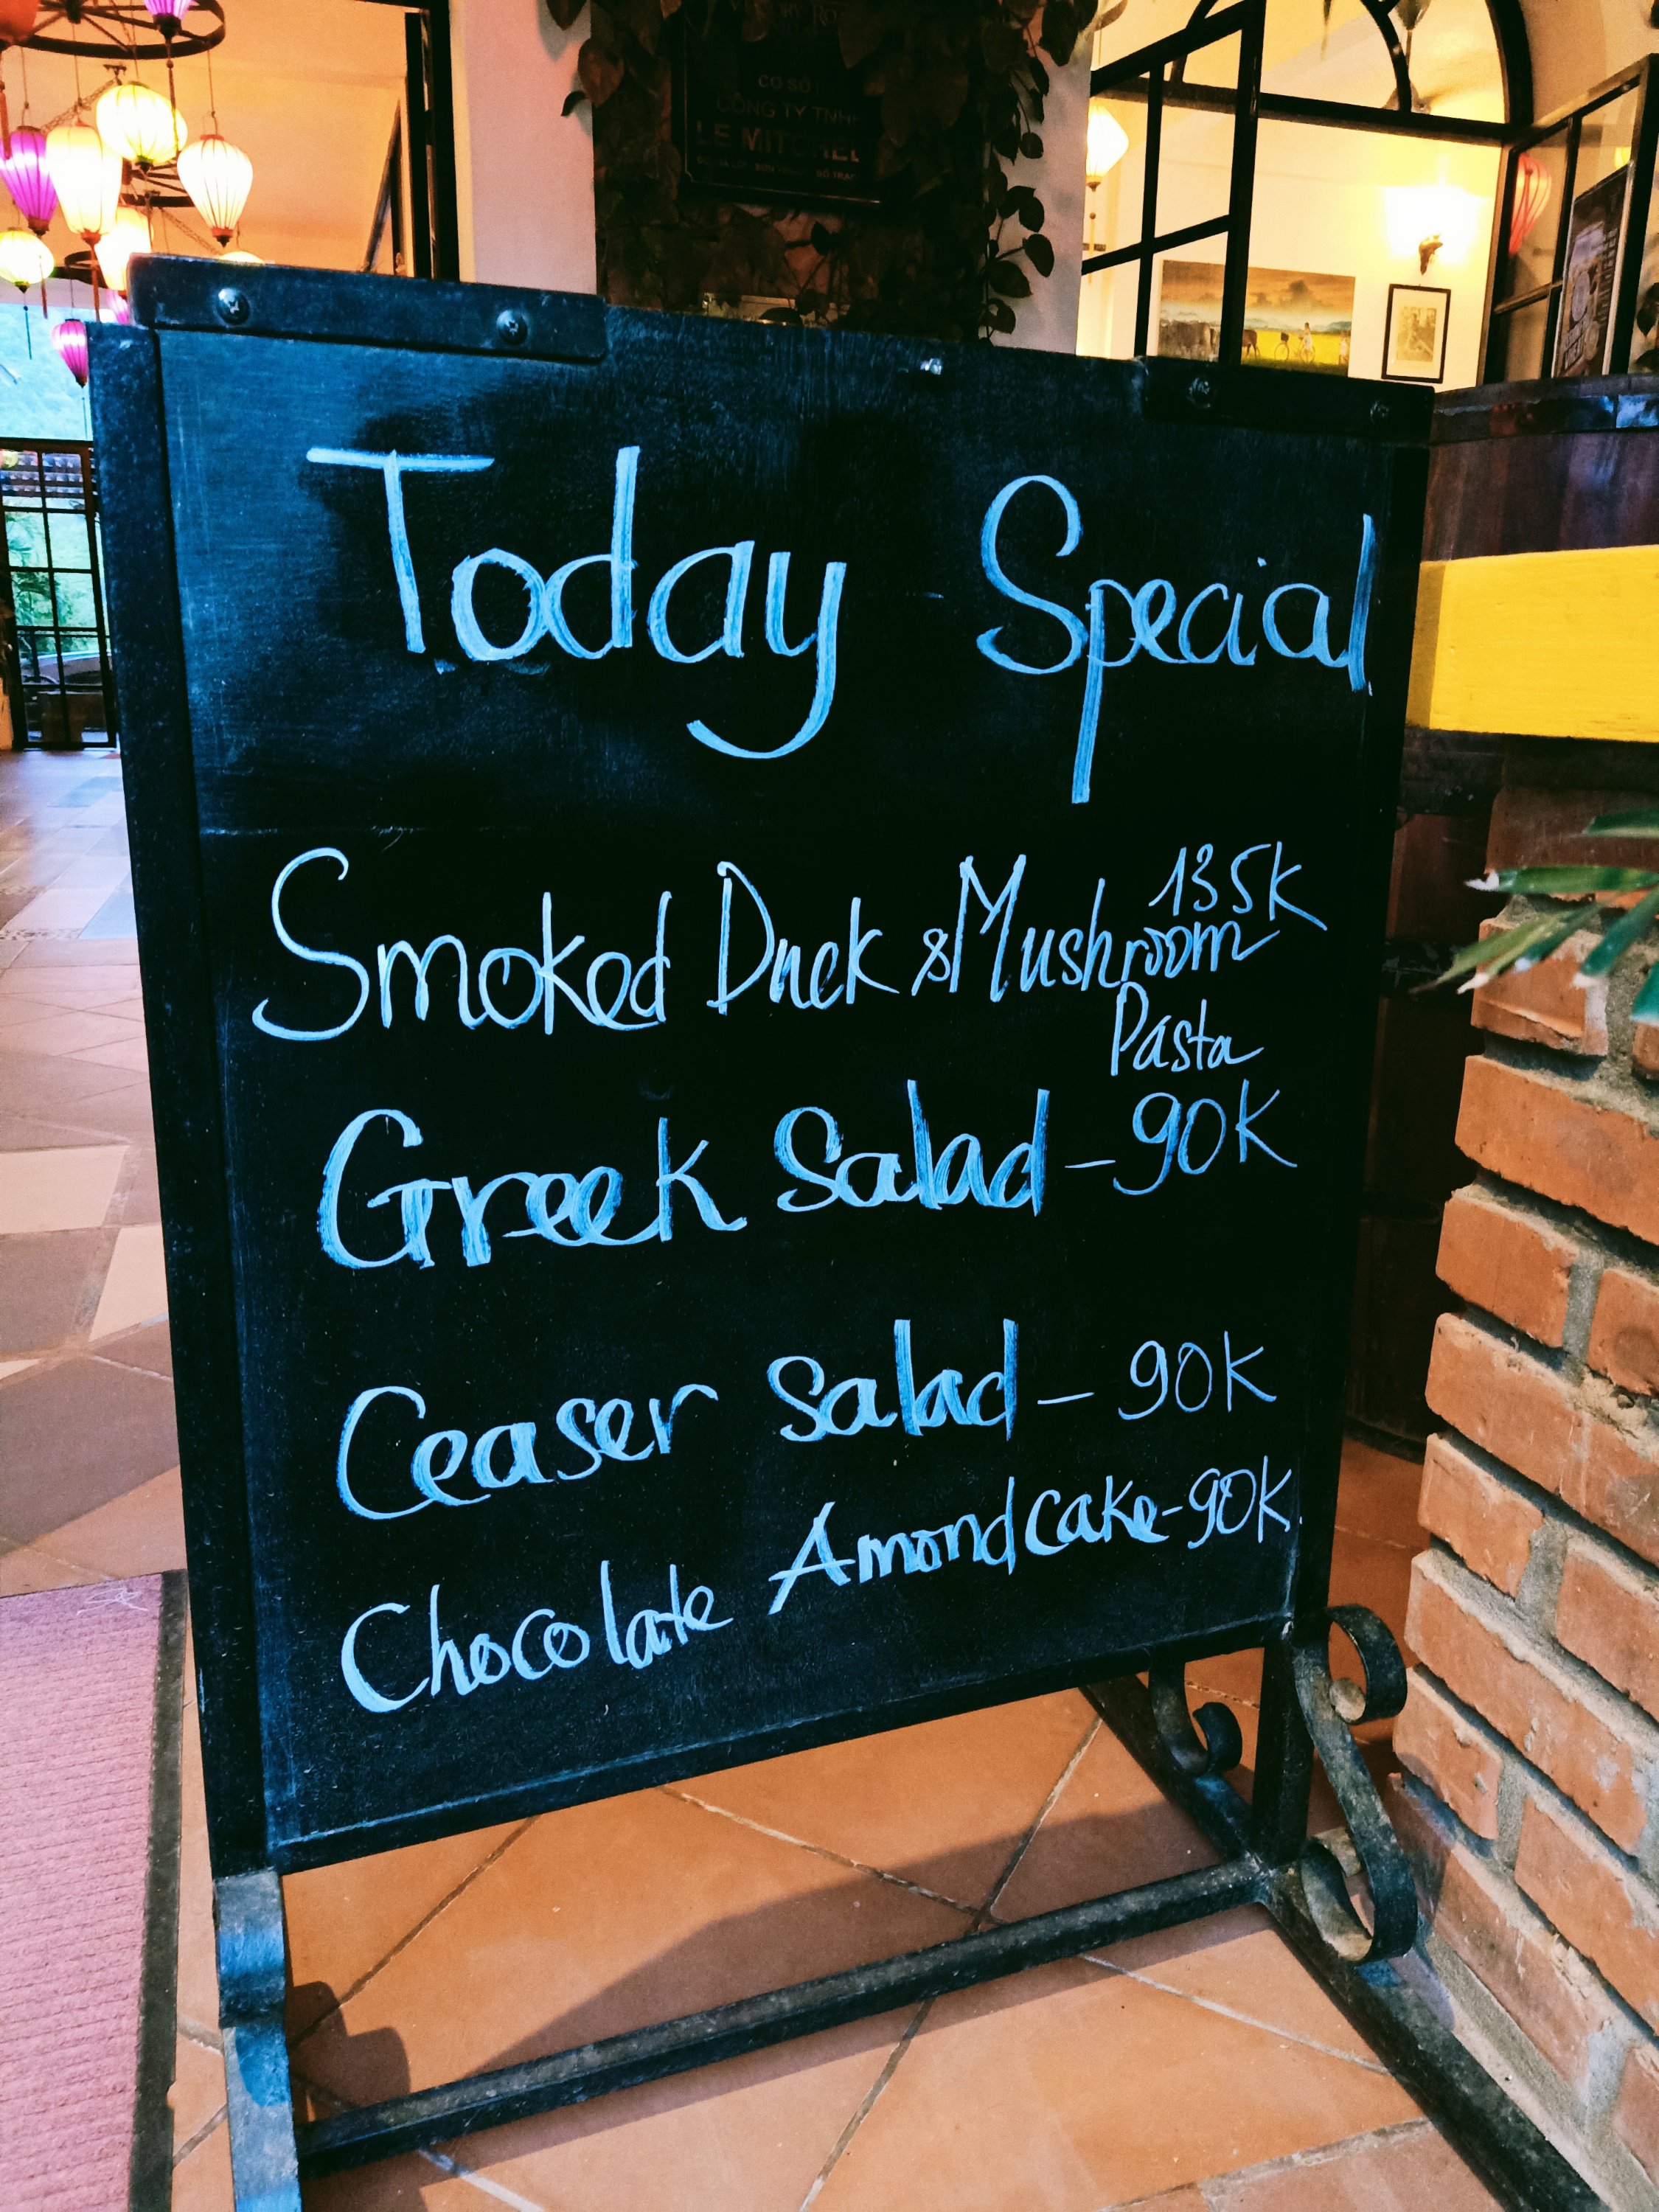 CƠ SỞ
CÔNG TY TNHH
LE MITCHEL
Today Special
135K
Smoked Duck & Mushroom
Pasta
Greek Salad - 90K
Ceaser Salad - 90K
Chocolate Amond cake - 90K